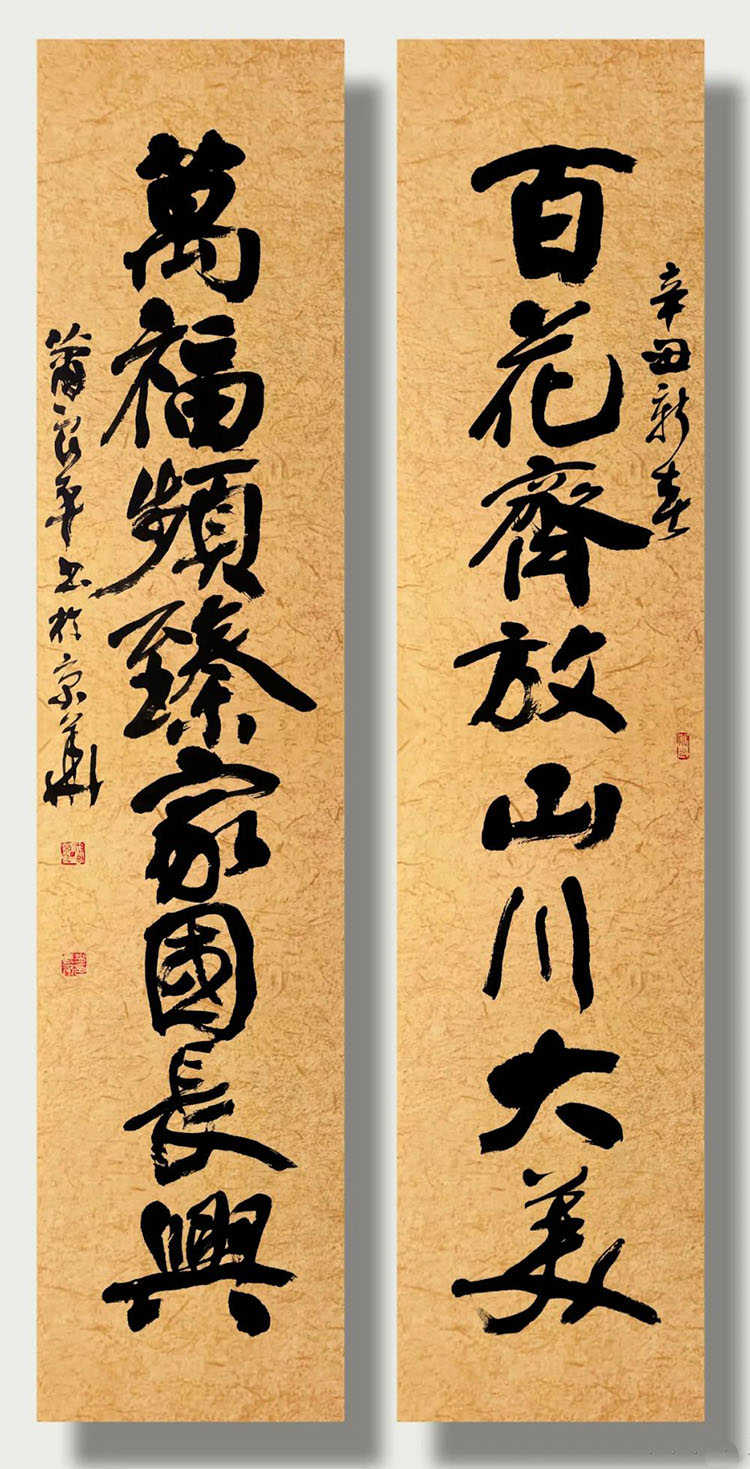 辛丑新春
百花齊放山川大美
萬福頻臻家國長興
良平书於京華